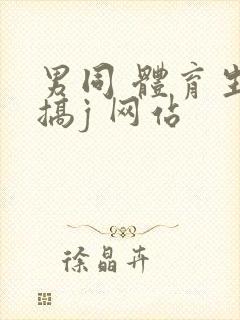 男同 體育生
搞j 网佔
徐晶卉